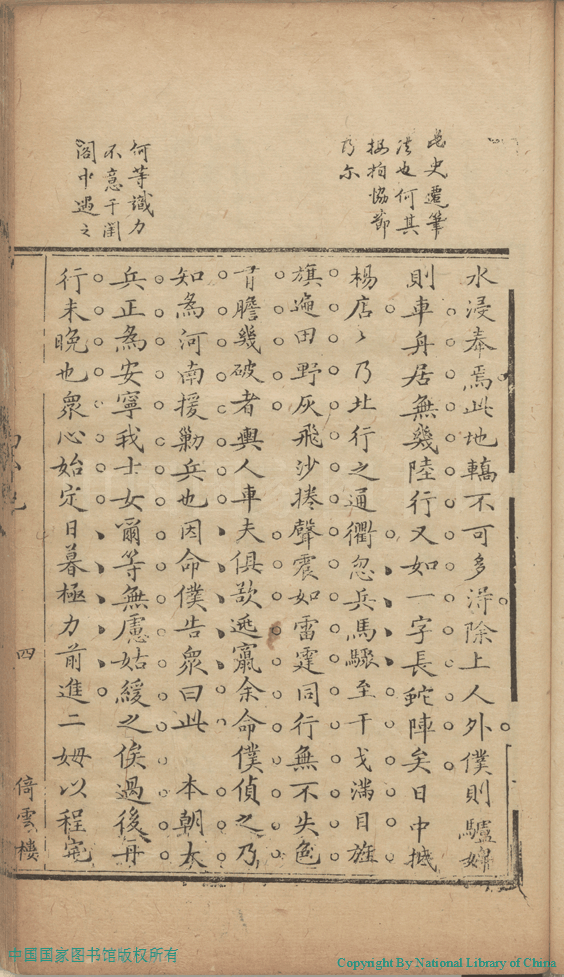 是史遷筆
法也何其
按拍協節
乃尔
何等識力
不意于閨
閣中遇之
水浸奉焉此地轎不可多得除上人外僕則驢婦
則車舟居無幾陸行又如一字長蛇陣矣日中抵
楊店〻乃北行之通衢忽兵馬驟至干戈滿目旌
旗遍田野灰飛沙捲聲震如雷霆同行無不失色
有膽幾破者輿人車夫俱欲逃竄余命僕偵之乃
知為河南援勦兵也因命僕告衆曰此 本朝大
兵正為安寧我士女爾等無慮姑緩之俟過後再
行未晚也衆心始定日暮極力前進二姆以程寬
四
倚雲樓
中国国家图书馆版权所有
Copyright By National Library of China